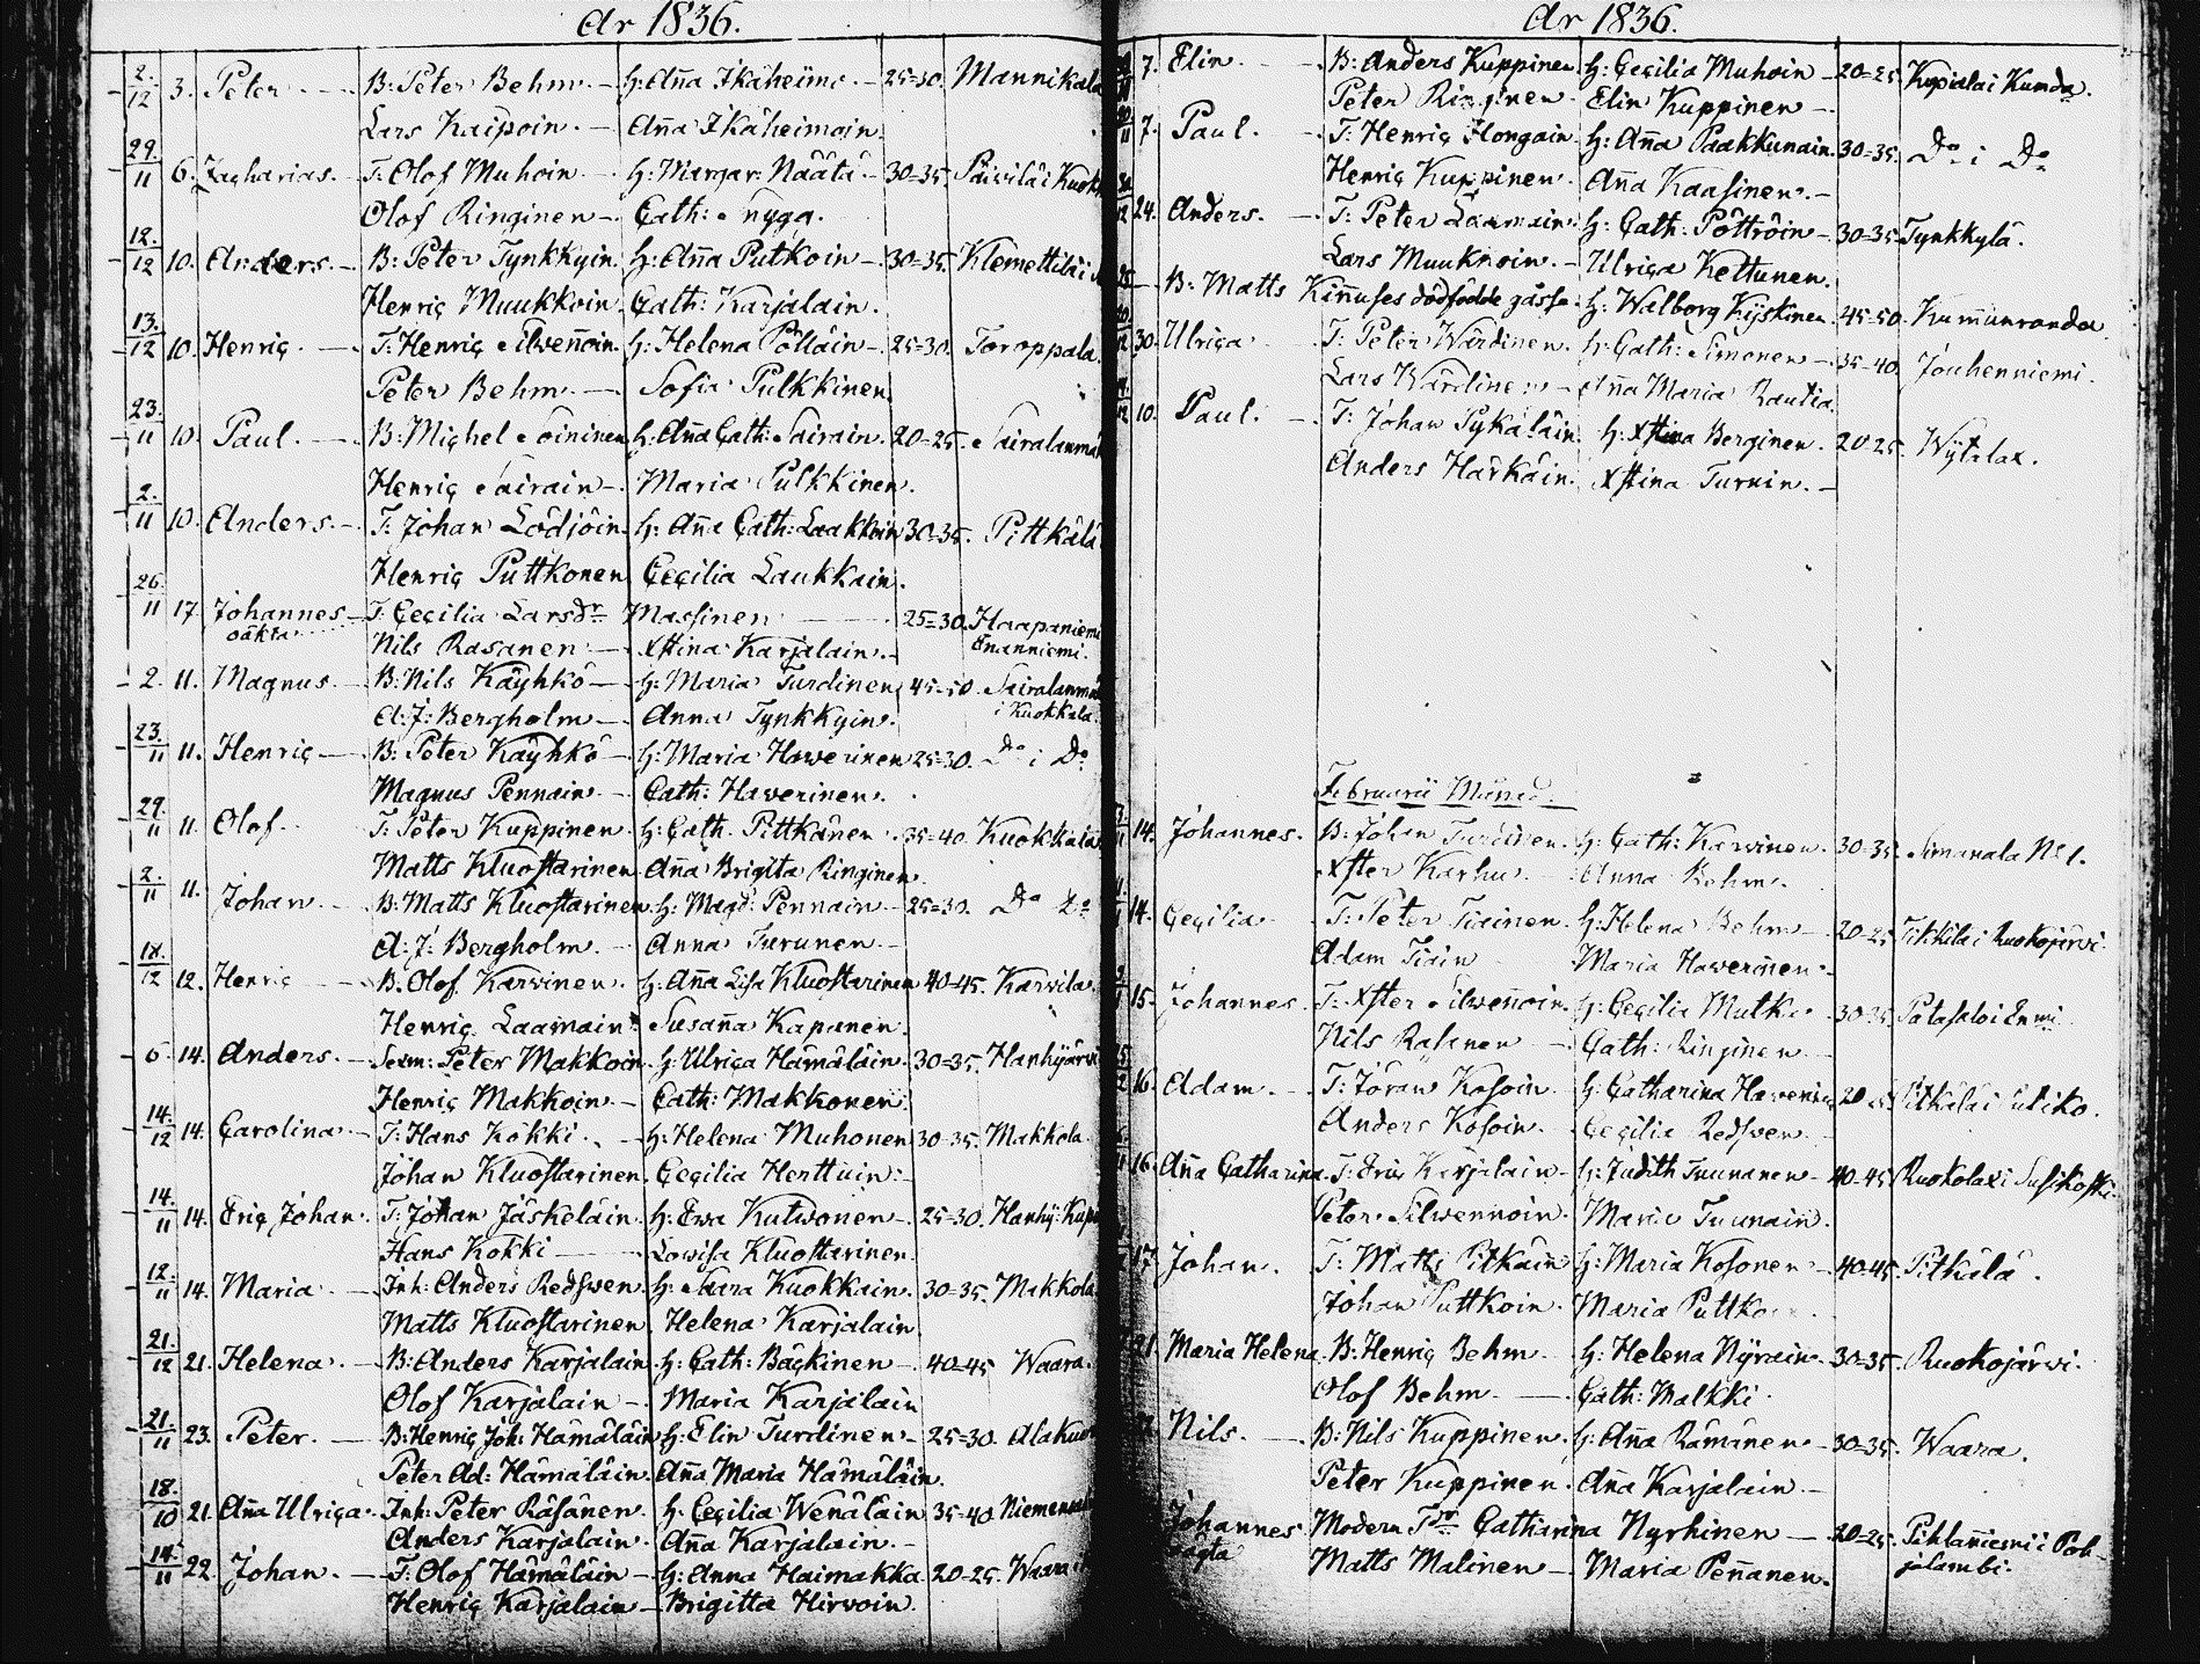 År 1836.
2. 3. Peter. B: Peter Behm. H: Ana Ikäheimo. 25=30. Mannikala
12 Lars Kaipoin. Ana Ikäheimoin.
29. 6. Zacharias. T: Olof Muhoin. H: Margar: Näätä. 30=35. Päivilä i Kuok
11 Olof Ringinen. Cath: Snygg.
12. 10. Anders. B: Peter Tynkkyin. H: Ana Putkoin. 30=35. Klemettilä i
12 Henric Muukkoin. Cath: Karjalain.
13. 10. Henric. T: Henric Silwenoin. H: Helena Pölläin. 25=30. Toroppala.
12 Peter Behm. Sofia Pulkkinen.
23. 10. Paul. B: Michel Soininen. H: Ana Cath: Sairain. 20=25. Sairalanmä
11 Henric Sairain. Maria Pulkkinen.
2. 10. Anders. T: Johan Lödjöin. H: Ana Cath: Laakkoin 30=35. Pittkälä
11 Henric Puttkonen Cecilia Laukkain.
26. 17. Johannes T: Cecilia Larsdr Massinen 25=30. Haapaniemi
11 oäkta Nils Rasanen. Xstina Karjalain. Enanniemi.
2. 11. Magnus. B: Nils Käyhkö H: Maria Turdinen 45=50. Sairalanmä
A: J: Bergholm. Anna Tynkkyin. i Kuokkala.
23. 11. Henric B: Peter Käyhkö H: Maria Hawerinen 25=30. Do i Do
11 Magnus Pennain. Cath: Hawerinen.
29. 11. Olof. T: Peter Kuppinen. H: Cath. Pittkänen. 35=40. Kuokkala
11 Matts Kluostarinen Ana Brigita Ringinen.
2. 11. Johan. B: Matts Kluostarinen. H: Magd: Pennain 25=30. Do Do
11 A: J: Bergholm. Anna Turunen.
18. 12. Henric B. Olof Karwinen. H: Ana Lisa Kluostarinen 40=45. Karvila
12 Henric Laamain. Susana Kapanen.
6. 14. Anders. Sexm: Peter Makkoin. H: Ulrica Hämäläin. 30=35. Hanhijärvi
Henric Makkoin. Cath: Makkonen.
14. 14. Carolina. T: Hans Kokki. H: Helena Muhonen 30=35. Makkola.
12 Johan Kluostarinen. Cecilia Herttuin.
14. 14. Eric Johan. T: Johan Jäskeläin. H: Ewa Kutwonen. 25=30. Hanhij: Kup
11 Hans Kokki Lowisa Kluostarinen.
12. 14. Maria. Inh: Anders Redswen. H: Saara Kuokkain. 30=35. Makkola
11 Matts Kluostarinen. Helena Karjalain
21. 21. Helena. B: Anders Karjalain. H: Cath: Bäckinen. 40=45 Waara.
12 Olof Karjalain. Maria Karjalain
21. 23. Peter. B: Henric Joh: Hämäläin H: Elin Turdinen 25=30. Alakuo
11 Peter Ad: Hämäläin. Ana Maria Hämäläin.
18. 21. Ana Ulrica. Inh: Peter Räsänen. H: Cecilia Wenäläin 35=40. Niemen
10 Anders Karjalain. Ana Karjalain.
14. 22. Johan. T: Olof Hämäläin H: Anna Haimakka 20=25. Waara
11 Henric Karjalain Brigitta Hirwoin.
År 1836.
7. Elin. B: Anders Kuppinen H: Cecilia Muhoin 20=25. Kupiala i Kunda.
Peter Ringinen. Elin Kuppinen
7. Paul. T: Henric Hongain. H: Ana Paakkunain. 30=35. Do i Do
Henric Kuppinen. Ana Kaasinen.
24. Anders. T: Peter Laamain. H: Cath: Pöttröin. 30=35. Tynkkylä.
Lars Muuknoin. Ulrica Kettunen.
B: Matts Kinuses dödfödde gosse. H: Walborg Kyskinen. 45=50. Kumunranda
30. Ulrica T: Peter Wärdinen. H: Cath: Simonen 35=40. Jouhenniemi.
Lars Wärdinen Ana Maria Rautia.
10. Paul. T: Johan Pykäläin. H: Xstina Berginen. 20=25. Wytalax.
Anders Härkäin. Xstina Turuin.
Februarii Månad.
14. Johannes. B: Johan Turdinen. H: Cath: Karwinen. 30=35. Simanala No 1.
Xster Karhu. Anna Behm.
14. Cecilia T: Peter Tiainen. H: Helena Behm 20=25. Tikkila i Ruokojärvi.
Adam Tiain Maria Hawerinen.
15. Johannes. T: Xster Silwenoin. H: Cecilia Mutka 30=35. Patasalo i Enmi.
Nils Rasanen Cath: Ringinen
16. Adam. T: Jöran Kosoin H: Catharina Hawerin 20 25. Pitkälä i Suliko.
Anders Kosoin. Cecilia Redswen.
16. Ana Catharina. T: Eric Karjalain H: Judith Tuunanen 40=45. Ruokolax i Susikoski.
Peter Silwennoin. Maria Tuunain.
17. Johan. T: Matts Pitkäin H: Maria Kosonen 40=45. Pitkälä.
Johan Puttkoin. Maria Puttko
21. Maria Helena. B: Henric Behm H: Helena Nyräin. 30=35. Ruokojärwi.
Olof Behm. Cath: Malkki.
Nils. B: Nils Kuppinen. H: Ana Rämänen 30=35. Waara.
Peter Kuppinen. Ana Karjalain.
Johannes Modern Tdr Catharina Nyrhinen 20=25. Pihlaniemi i Poh-
oägta Matts Malinen Maria Penanen. jalambi.